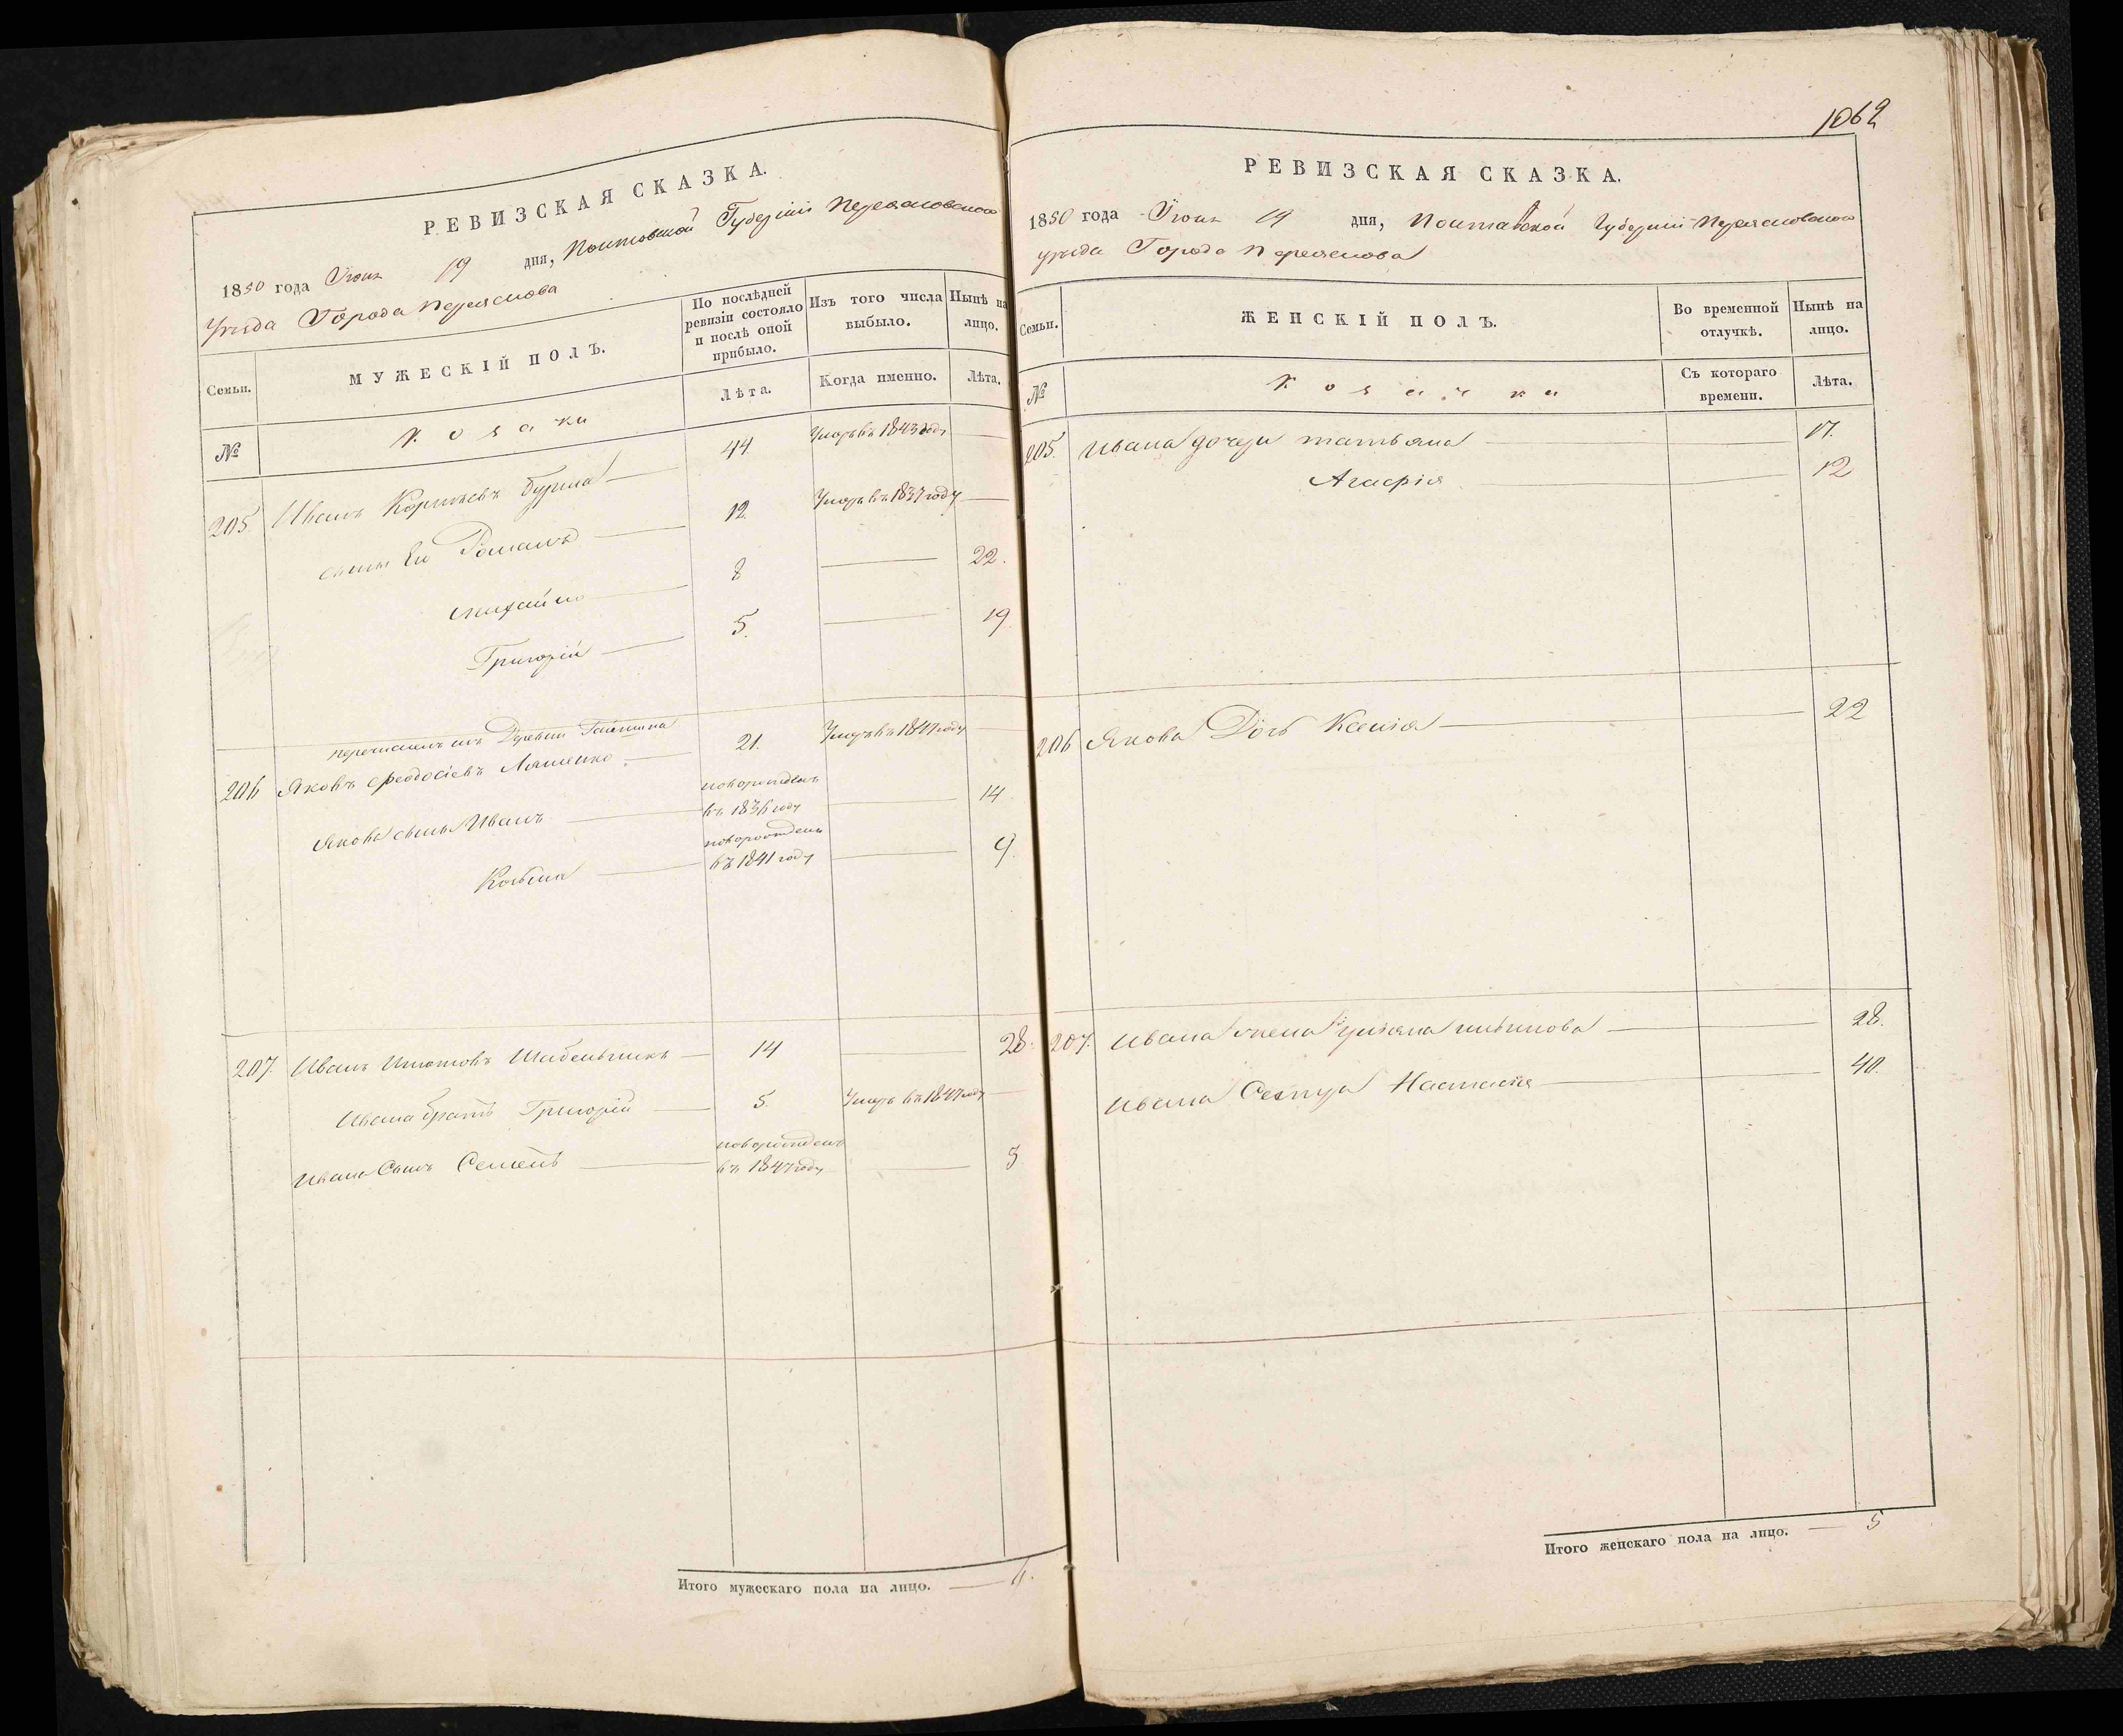 РЕВИЗСКАЯ СКАЗКА.
1850 года Іюня 19 дня, Полтавской Губерніи Переяславскаго
Уезда Города Переяслова
Семьи.
МУЖЕСКІЙ ПОЛЪ.
По послѣдней ревизіи состояло и послѣ оной прибыло.
Изъ того числа выбыло.
Нынѣ на лицо.
№
Козаки
Лѣта.
Когда именно.
Лѣта.
205 Иванъ 44 Умеръ въ 1843 году
сынъ Ев Романъ 12. Умеръ въ 1837 году
Михайло 8 22.
Григорій 5. 19
перечисленъ изъ Деревни
206 Яковъ Феодосіевъ Ляшенко 21. Умеръ въ 1847 году
Якова сынъ Иванъ новорожденъ въ 1836 году 14
Козьма новорожденъ въ 1841 году 9.
207. Иванъ Шабельникъ 14 28.
Ивана братъ Григорій 5. Умеръ въ 1847 году
Ивана Сынъ Семенъ новорожденъ въ 1847 году 3
Итого мужескаго пола на лицо. 6.
1062
РЕВИЗСКАЯ СКАЗКА.
1850 года Іюня 19 дня, Полтавской Губерніи Переяславскаго
уезда Города Переяслова
Семьи.
ЖЕНСКІЙ ПОЛЪ.
Во временной отлучкѣ.
Нынѣ на лицо.
№
Козачки
Съ котораго времени.
Лѣта.
205. Ивана дочери Татьяна 17.
Агафія 12
206 Якова Дочь Ксенія 22
207. Ивана жена 28.
Ивана Сестра Настасія 40.
Итого женскаго пола на лицо. 5